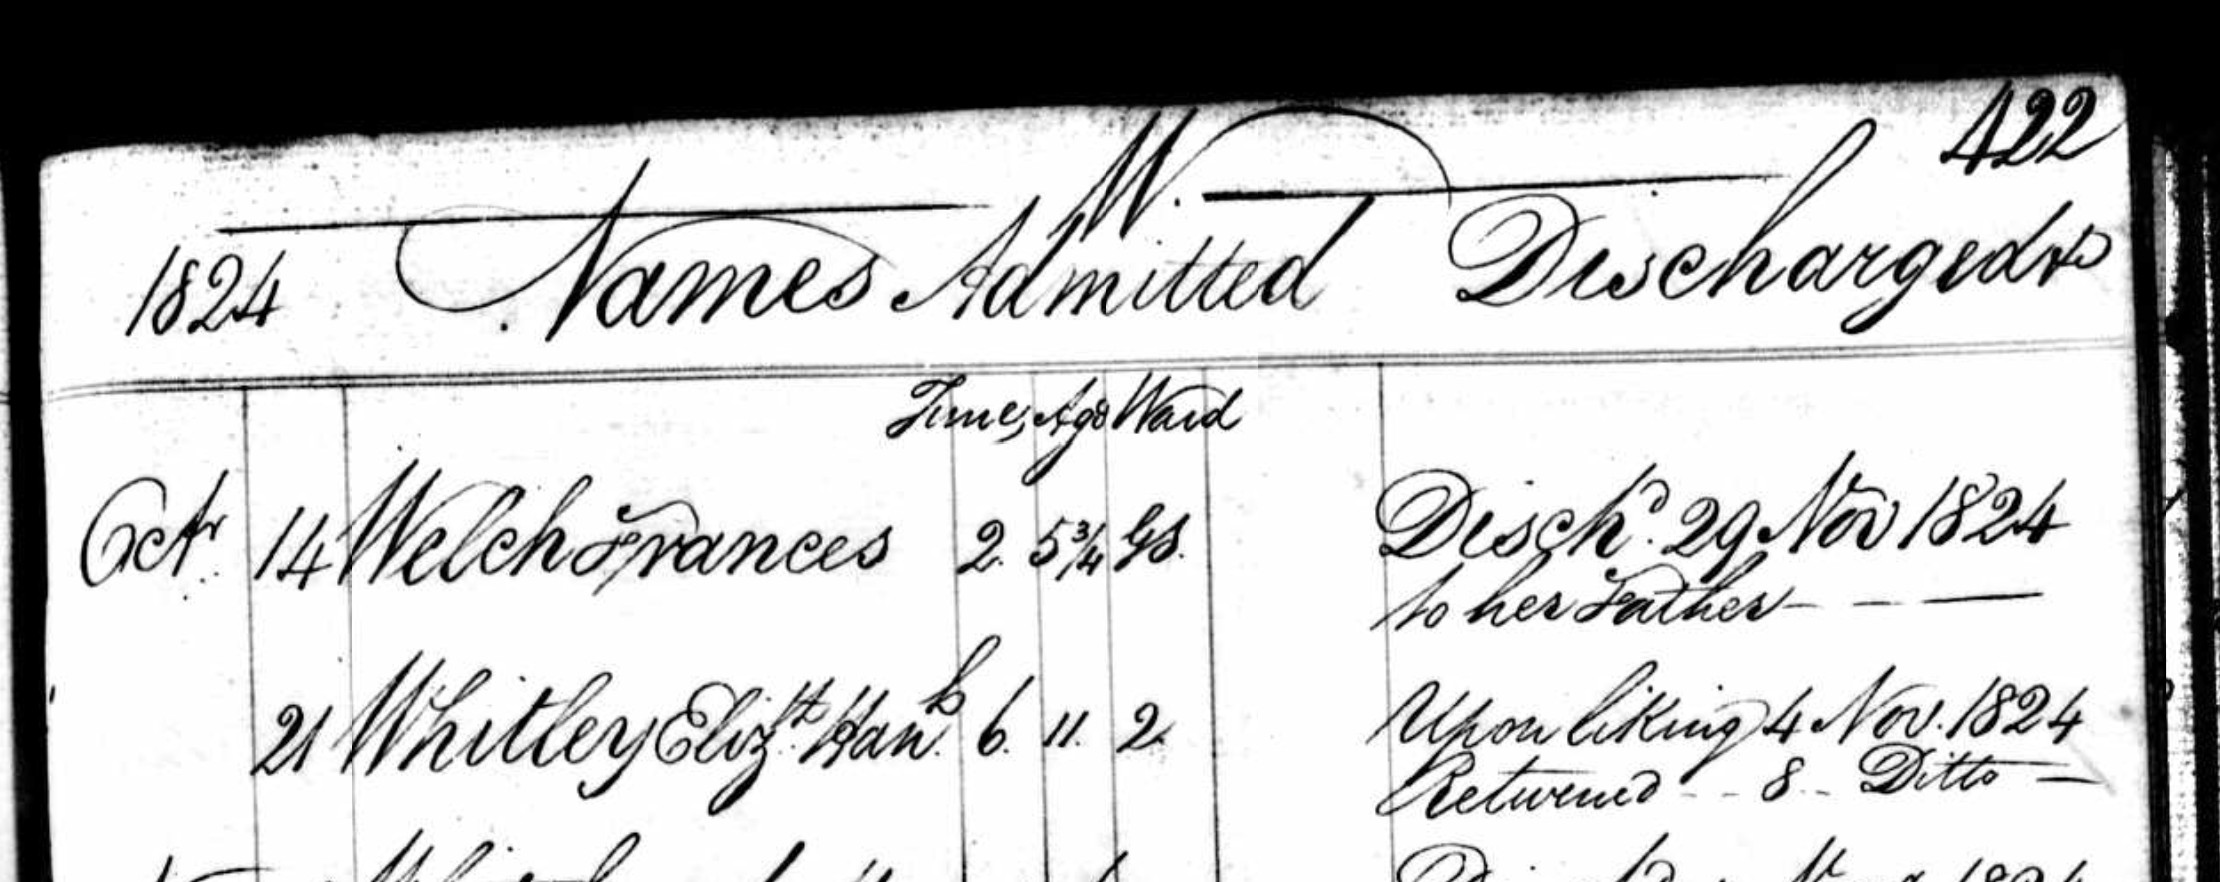 422
W.
1824 Names Admitted Discharged &c
Time, Age Ward
Octr 14 Welch Frances 2. 5 3/4 GS. Dischd. 29 Nov 1824
to her Father
21 Whitley Elizth. Hanh. 6. 11. 2. Upon liking 4 Nov. 1824
Returned 8 Ditto